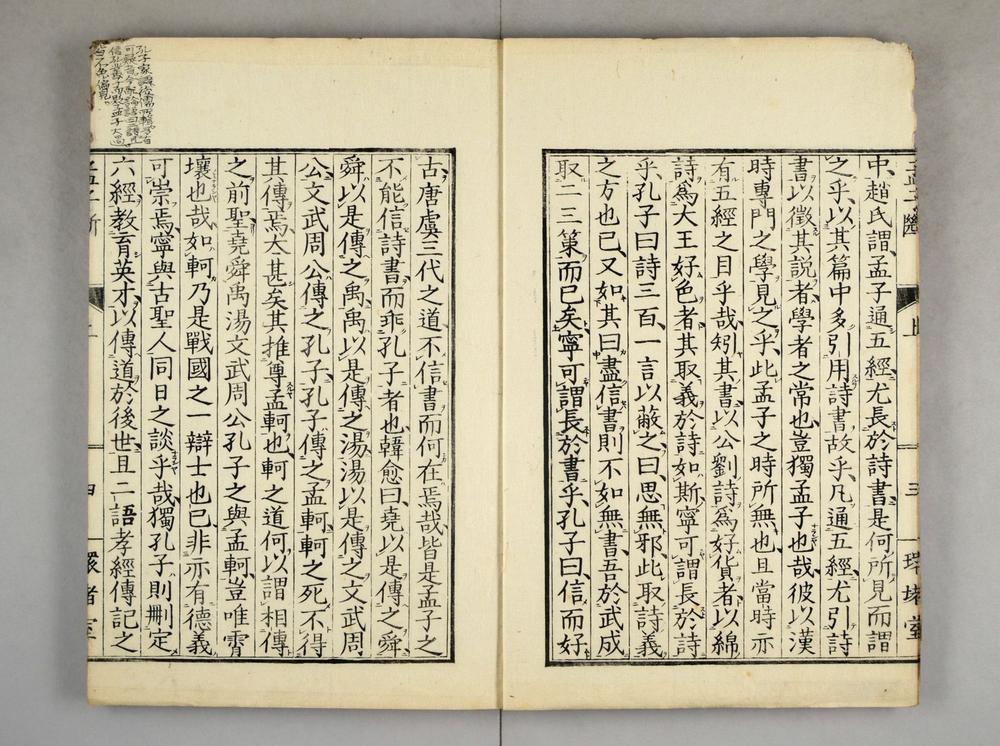 中趙氏謂孟子通五經尤長於詩書是何所見而謂
之乎以其篇中多引用詩書故乎凡通五經尤引詩
書以徵其說者學者之常也豈獨孟子也哉彼以漢
時專門之學見之乎此孟子之時所無也且當時亦
有五經之目乎哉矧其書以公劉詩爲好貨者以綿
詩爲大王好色者其取義於詩如斯寧可謂長於詩
乎孔子曰詩三百一言以蔽之曰思無邪此取詩義
之方也已又如其曰盡信書則不如無書吾於武成
取二三策而已矣寧可謂長於書乎孔子曰信而好
三
環堵室
古唐虞三代之道不信書而何在焉哉皆是孟子之
不能信詩書而乖孔子者也韓愈曰堯以是傳之舜
舜以是傳之禹禹以是傳之湯湯以是傳之文武周
公文武周公傳之孔子孔子傳之孟軻軻之死不得
其傳焉太甚矣其推尊孟軻也軻之道何以謂相傳
之前聖堯舜禹湯文武周公孔子之與孟軻豈唯霄
壤也哉如軻乃是戰國之一辯士也已非亦有德義
可崇焉寧與古聖人同日之談乎哉獨孔子則刪定
六經教育英才以傳道於後世且二語孝經傳記之
四
環堵室
孔子家